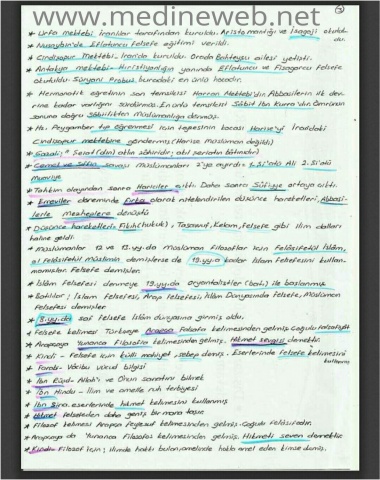 www.medineweb.net
* Urfa mektebi İranlılar tarafından kuruldu. Aristo mantığı ve İsagoji okutuldu.
* Nusaybin'de Eflatuncu Felsefe eğitimi verildi.
* Cündişapur mektebi, İran'da kuruldu. Orada Bahteyşu ailesi yetişti.
* Antakya mektebi- Hıristiyanlığın yanında Eflatuncu ve Fisagorcu Felsefe
okutuldu. Süryani Probus buradaki en ünlü hocadır.
* Hermanatik öğretinin son temsilcisi Harran Mektebi'dir. Abbasilerin ilk dev-
rine kadar varlığını sürdürmüş. En ünlü temsilcisi Sabit İbn Kurra'dır. Ömrünün
sonuna doğru Sabiilikten Müslümanlığa dönmüş.
* Hz. Peygamber tıp öğrenmesi için teyzesinin kocası Harise'yi İrandaki
Cündişapur mektebine göndermiş (Harise Müslüman değildi)
* Gazali; " Serat (din) aklın zahiridir; akıl şeriatın bâtınıdır)
* Cemel ve Sıffin savaşı Müslümanları 2'ye ayırdı. 1. Si'atü Ali 2. Si'atü
Muaviye
* Tahkim olayından sonra Hariciler çıktı. Daha sonra Sûfiyye ortaya çıktı.
* Emeviler döneminde Fırka olarak nitelendirilen düşünce hareketleri, Abbasi-
lerle Mezheplere dönüştü
* Düşünce hareketleri; Fıkıh (hukuk), Tasavvuf, Kelam, felsefe gibi ilim dalları
haline geldi.
* Müslümanlar 12 ve 13. yy.da Müslüman filozoflar için Felâsifetül İslâm,
al Felâsifetül Müslimin demişlersede 19. yy.a kadar İslam felsefesini kullan-
mamışlar. Felsefe demişler.
* İslâm Felsefesi denmeye 19.yy.da oryantalistler (batı) ile başlanmış
* Batılılar; İslam felsefesi, Arap felsefesi, İslâm Dünyasında felsefe, Müslüman
Felsefesi demişler
* 8. yy. da saf felsefe İslâm dünyasına girmiş oldu.
* Felsefe kelimesi Türkçeye Arapça Falsafa kelimesinden gelmiş
* Arapçaya Yunanca Filosofia kelimesinden gelmiş. Hikmet sevgisi demektir.
* Kindi - Felsefe için külli mahiyet, sebep demiş. Eserlerinde felsefe kelimesini
kullanmış
* Farabi- Vâcibu vücud bilgisi
* İbn Rüşd- Allah'ı ve O'nun sanatını bilmek
* İbn Hindu - İlim ve amelle ruh terbiyesi
* İbn Sina eserlerinde hikmet kelimesini kullanmış
* Hikmet felsefeden daha geniş bir mana taşır
* Filozof kelimesi Arapça feylesuf kelimesinden gelmiş. Çoğulu felâsifedir.
* Arapçaya da Yunanca Filosofos kelimesinden gelmiş. Hikmeti seven demektir.
* Kindi- Filozof için; ilimde hakkı bulan, amelinde hakla amel eden kimse demiş.